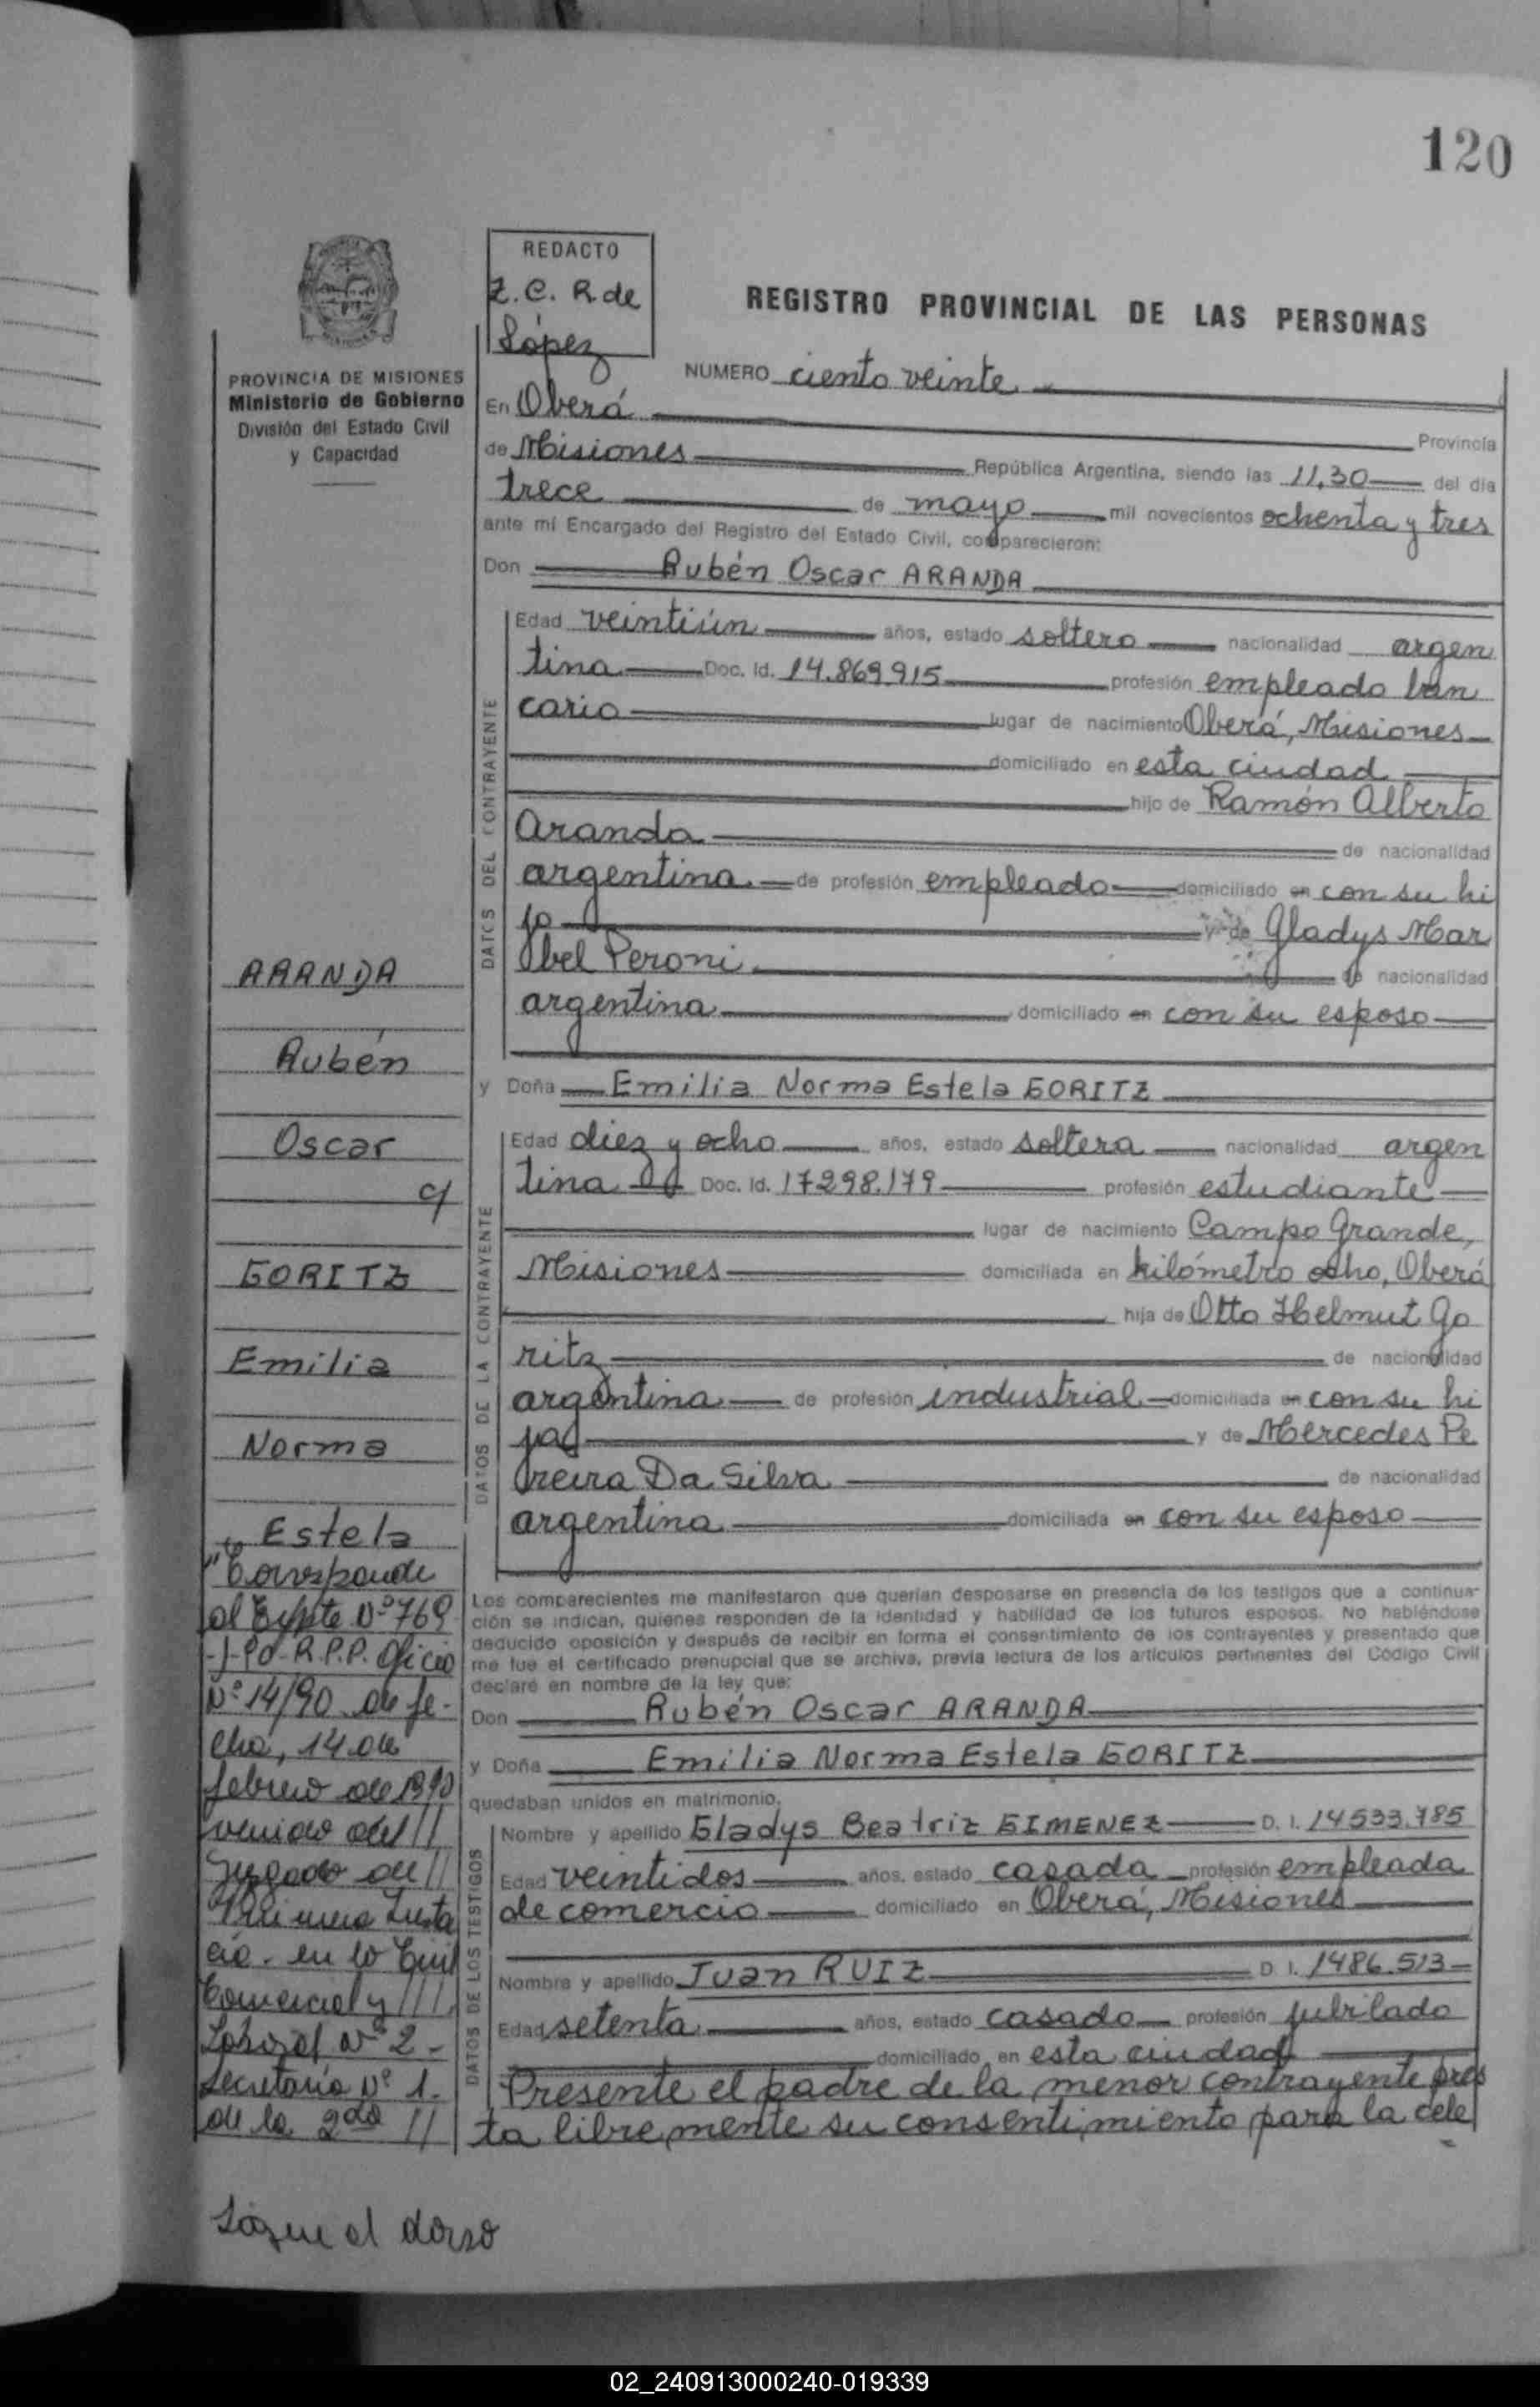 120
REDACTO
Z. C. R. de
López
REGISTRO PROVINCIAL DE LAS PERSONAS
PROVINCIA DE MISIONES
Ministerio de Gobierno
División del Estado Civil
y Capacidad
NUMERO ciento veinte
En Oberá Provincia
de Misiones República Argentina, siendo las 11,30 del día
trece de mayo mil novecientos ochenta y tres
ante mí Encargado del Registro del Estado Civil, comparecieron:
Don Rubén Oscar ARANDA
DATOS DEL CONTRAYENTE
Edad veintiún años, estado soltero nacionalidad argen
tina Doc. Id. 14.869.915 profesión empleado ban
cario lugar de nacimiento Oberá, Misiones
domiciliado en esta ciudad
hijo de Ramón Alberto
Aranda de nacionalidad
argentina de profesión empleado domiciliado en con su hi
jo y de Gladys Mar
Ibel Peroni de nacionalidad
argentina domiciliado en con su esposo
y Doña Emilia Norma Estela GORITZ
DATOS DE LA CONTRAYENTE
Edad diez y ocho años, estado soltera nacionalidad argen
tina Doc. Id. 17298.179 profesión estudiante
lugar de nacimiento Campo Grande,
Misiones domiciliada en kilómetro ocho, Oberá
hija de Otto Helmut Go
ritz de nacionalidad
argentina de profesión industrial domiciliada en con su hi
ja y de Mercedes Pe
reira Da Silva de nacionalidad
argentina domiciliada en con su esposo
Los comparecientes me manifestaron que querían desposarse en presencia de los testigos que a continua-
ción se indican, quienes responden de la identidad y habilidad de los futuros esposos. No habiéndose
deducido oposición y después de recibir en forma el consentimiento de los contrayentes y presentado que
me fue el certificado prenupcial que se archiva, previa lectura de los artículos pertinentes del Código Civil
declaré en nombre de la ley que:
Don Rubén Oscar ARANDA
y Doña Emilia Norma Estela GORITZ
quedaban unidos en matrimonio.
DATOS DE LOS TESTIGOS
Nombre y apellido Gladys Beatriz GIMENEZ D. I. 14533.785
Edad veintidos años, estado casada profesión empleada
de comercio domiciliado en Oberá, Misiones
Nombre y apellido Juan RUIZ D. I. 1486.513
Edad setenta años, estado casado profesión jubilado
domiciliado en esta ciudad
Presente el padre de la menor contrayente pres
ta libremente su consentimiento para la cele
ARANDA
Rubén
Oscar
c/
GORITZ
Emilia
Norma
Estela
"Corresponde
al Expte Nº 769
-J-90-R.P.P. Oficio
Nº 14/90 de fe-
cha, 14 de
febrero de 1990
venido del //
Juzgado de //
Primera Insta
cia. en lo Civil
Comercial y ///
Laboral Nº 2 -
Secretaría Nº 1.
de la 2da //
Sigue al dorso
02_240913000240-019339